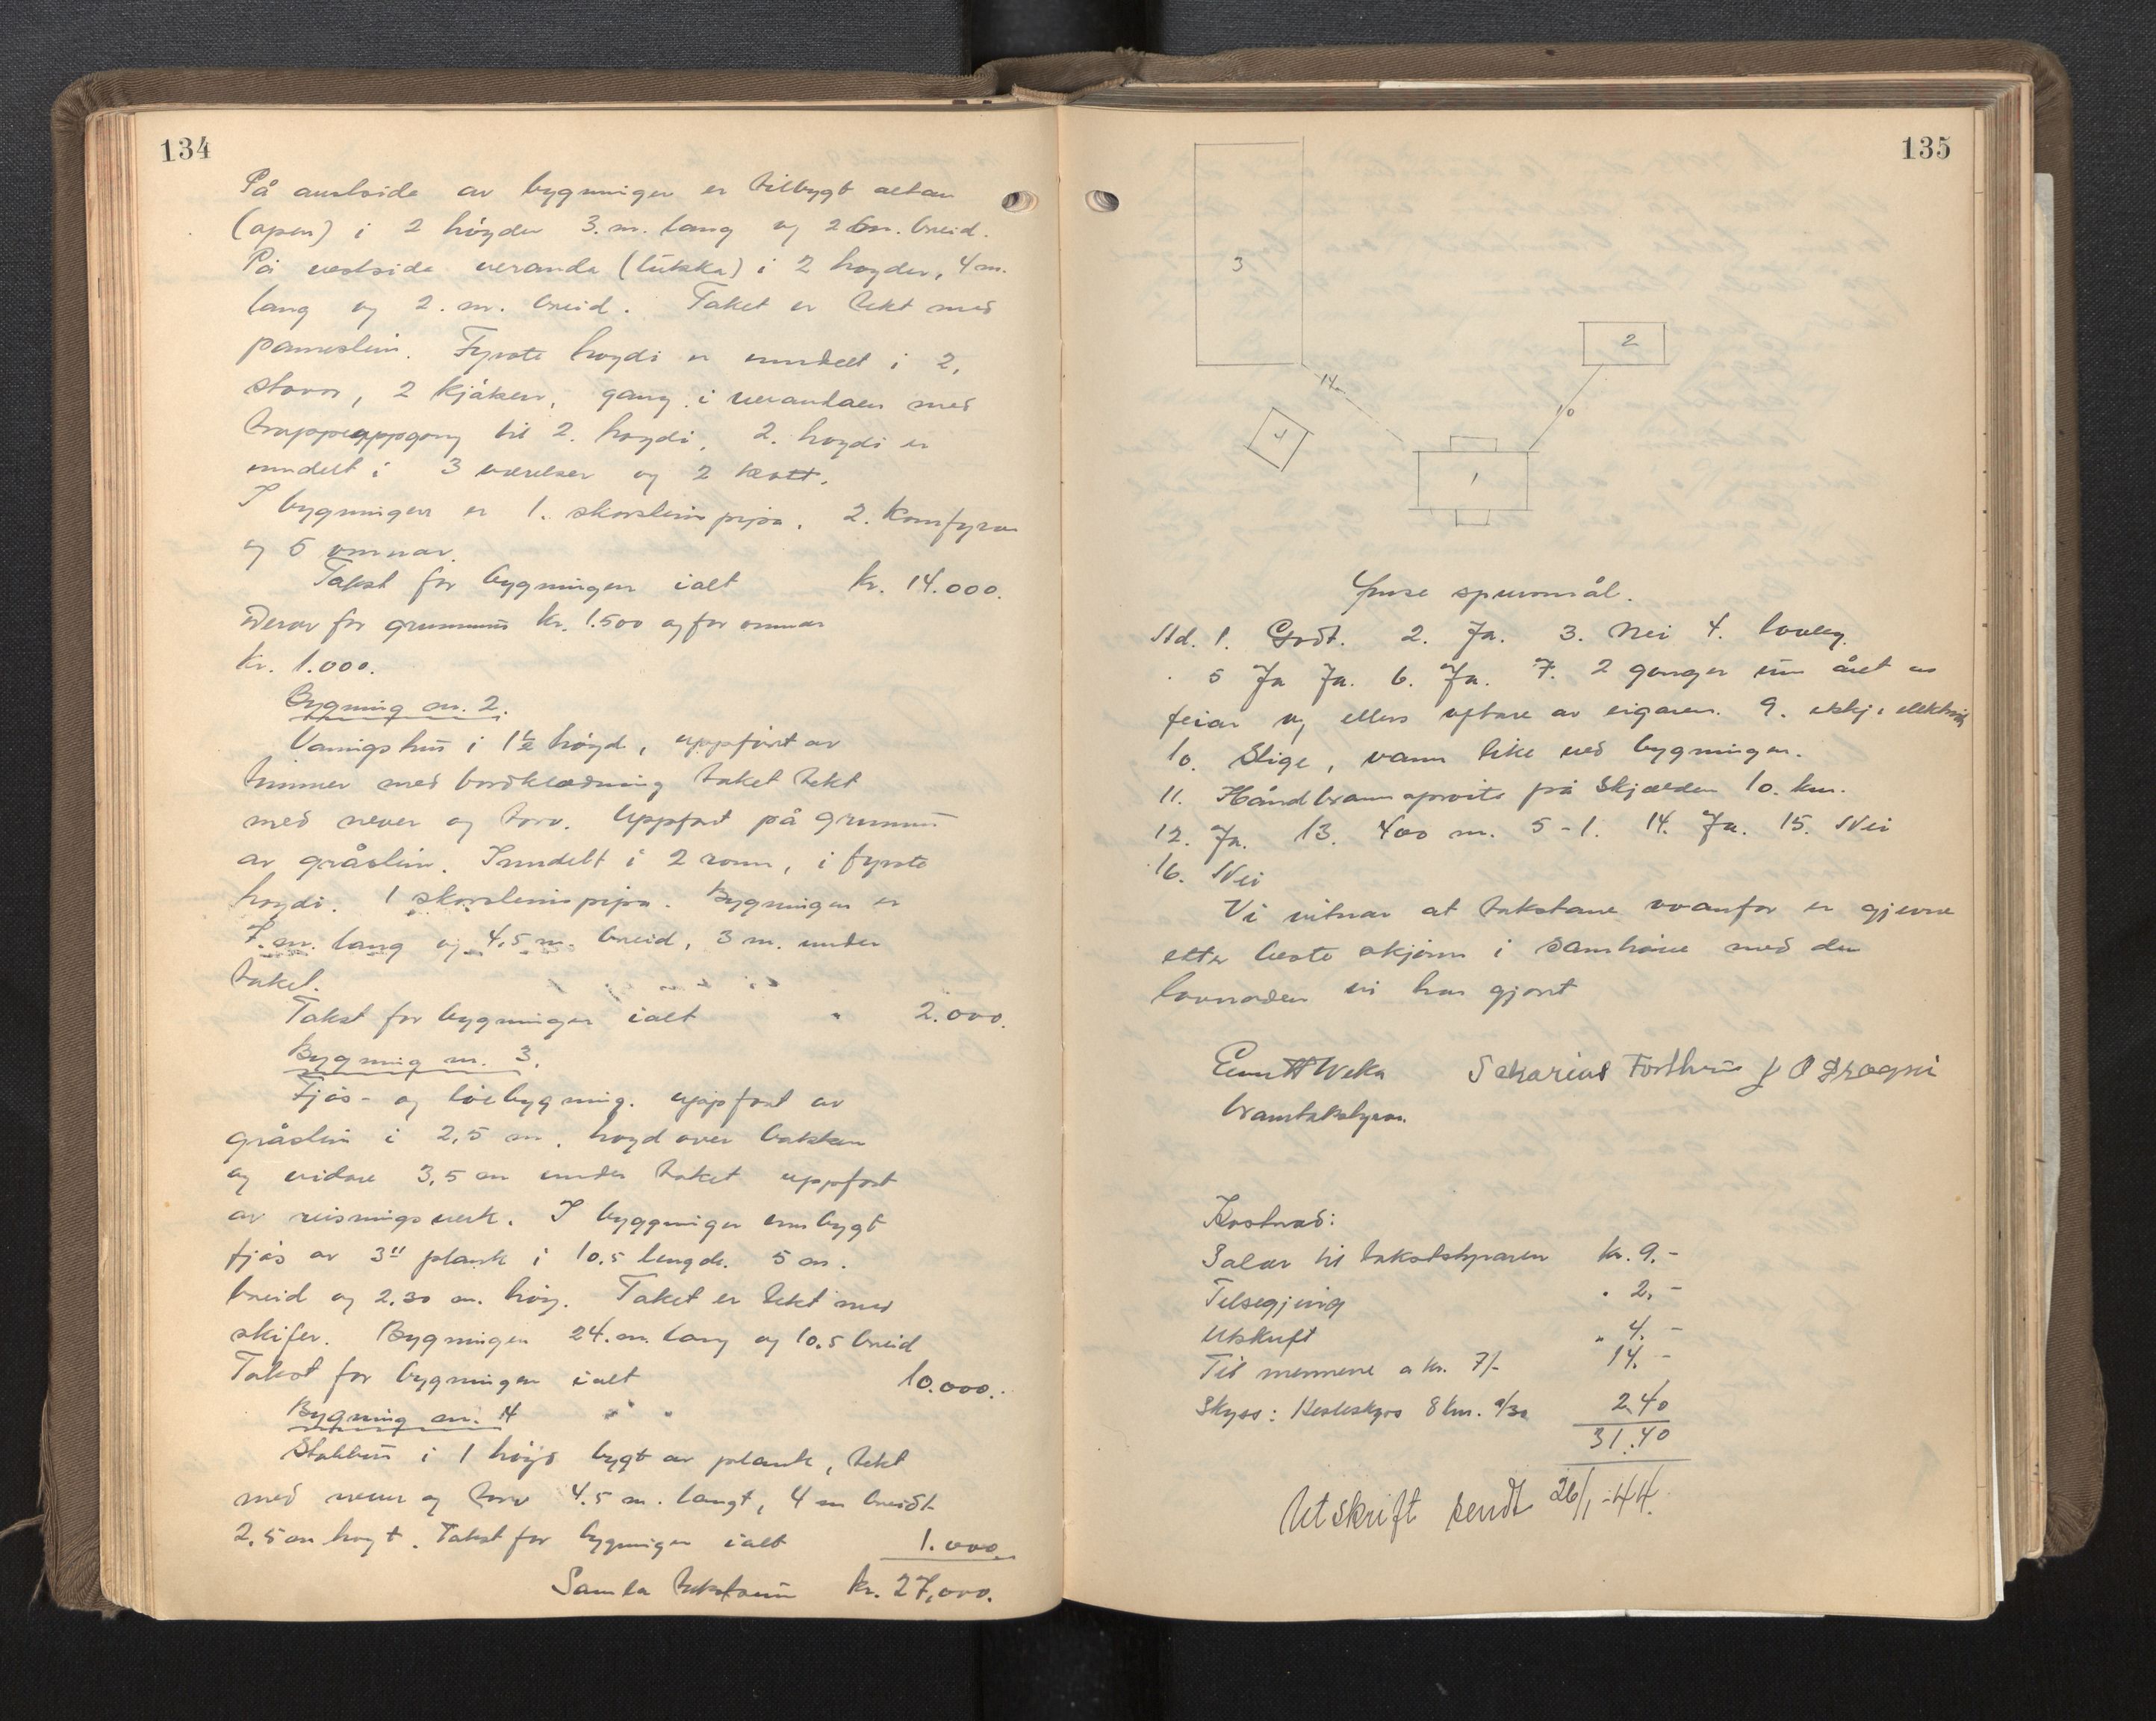 134
På austside av bygningen er tilbygt altan
(open) i 2 høgder 3. m. lang og 2 m. breid.
På vestside veranda (lukka) i 2 høgder, 4 m.
lang og 2. m. breid. Taket er tekt med
pannestein. Fyrste høgdi er inndelt i 2,
stovor, 2 kjøken, gang i verandaen med
trappeuppgang til 2. høgdi. 2. høgdi er
inndelt i 3 værelser og 2 kott.
I bygningen er 1. skorsteinspipa. 2. Komfyrar
og 5 omnar.
Takst for bygningen ialt kr. 14.000.
Derav for grunnmur kr. 1.500 og for omnar
kr. 1.000.
Bygning nr. 2.
Vaningshus i 1½ høgd, uppført av
timmer med bordklædning taket tekt
med never og torv. Uppført på grunnmur
av gråstein. Inndelt i 2 rom, i fyrste
høgdi. 1 skorsteinspipa. Bygningen er
7. m. lang og 4,5 m. breid, 3 m. under
taket.
Takst for bygningen ialt " 2.000.
Bygning nr. 3.
Fjøs- og løebygning. uppført av
gråstein i 2,5 m. høgd over bakken
og vidare 3,5 m under taket uppført
av reisningsverk. I byggningen innbygt
fjøs av 3" plank i 10.5 lengde. 5 m.
breid og 2.30 m. høg. Taket er tekt med
skifer. Bygningen 24. m. lang og 10.5 breid
Takst for bygningen ialt 10.000.
Bygning nr. 4
Stabbur i 1 høgd bygt av plank, tekt
med never og torv 4.5 m. langt, 4 m breidt
2,5 m høgt. Takst for bygningen ialt 1.000.
Samla takstsum kr. 27,000.
135
3
2
14 m
10
4
1
Ymse spursmål.
Ad. 1. Godt. 2. Ja. 3. Nei 4. lovleg.
5 Ja Ja. 6. Ja. 7. 2 ganger um året av
feiar og ellers oftare av eigaren. 9. elektrisk
10. Stige, vann like ved bygningen.
11. Håndbrannsprøite på Skjolden 10. km.
12. Ja. 13. 400 m. 5-1. 14. Ja. 15. Nei
16. Nei
Vi vitnar at takstane ovanfor er gjevne
etter beste skjønn i samhøve med den
lovnaden vi har gjort
Sakarias Forthun J O Drægni
branntakstyrar.
Kostnad:
Salær til takststyraren kr. 9,-
Tilsegjing " 2,-
Utskrift " 4. -
Til mennene a kr. 7/- 14. -
Skyss: Hesteskyss 8 km. a/30 2.40
31.40
Utskrift sendt 26/1-44.